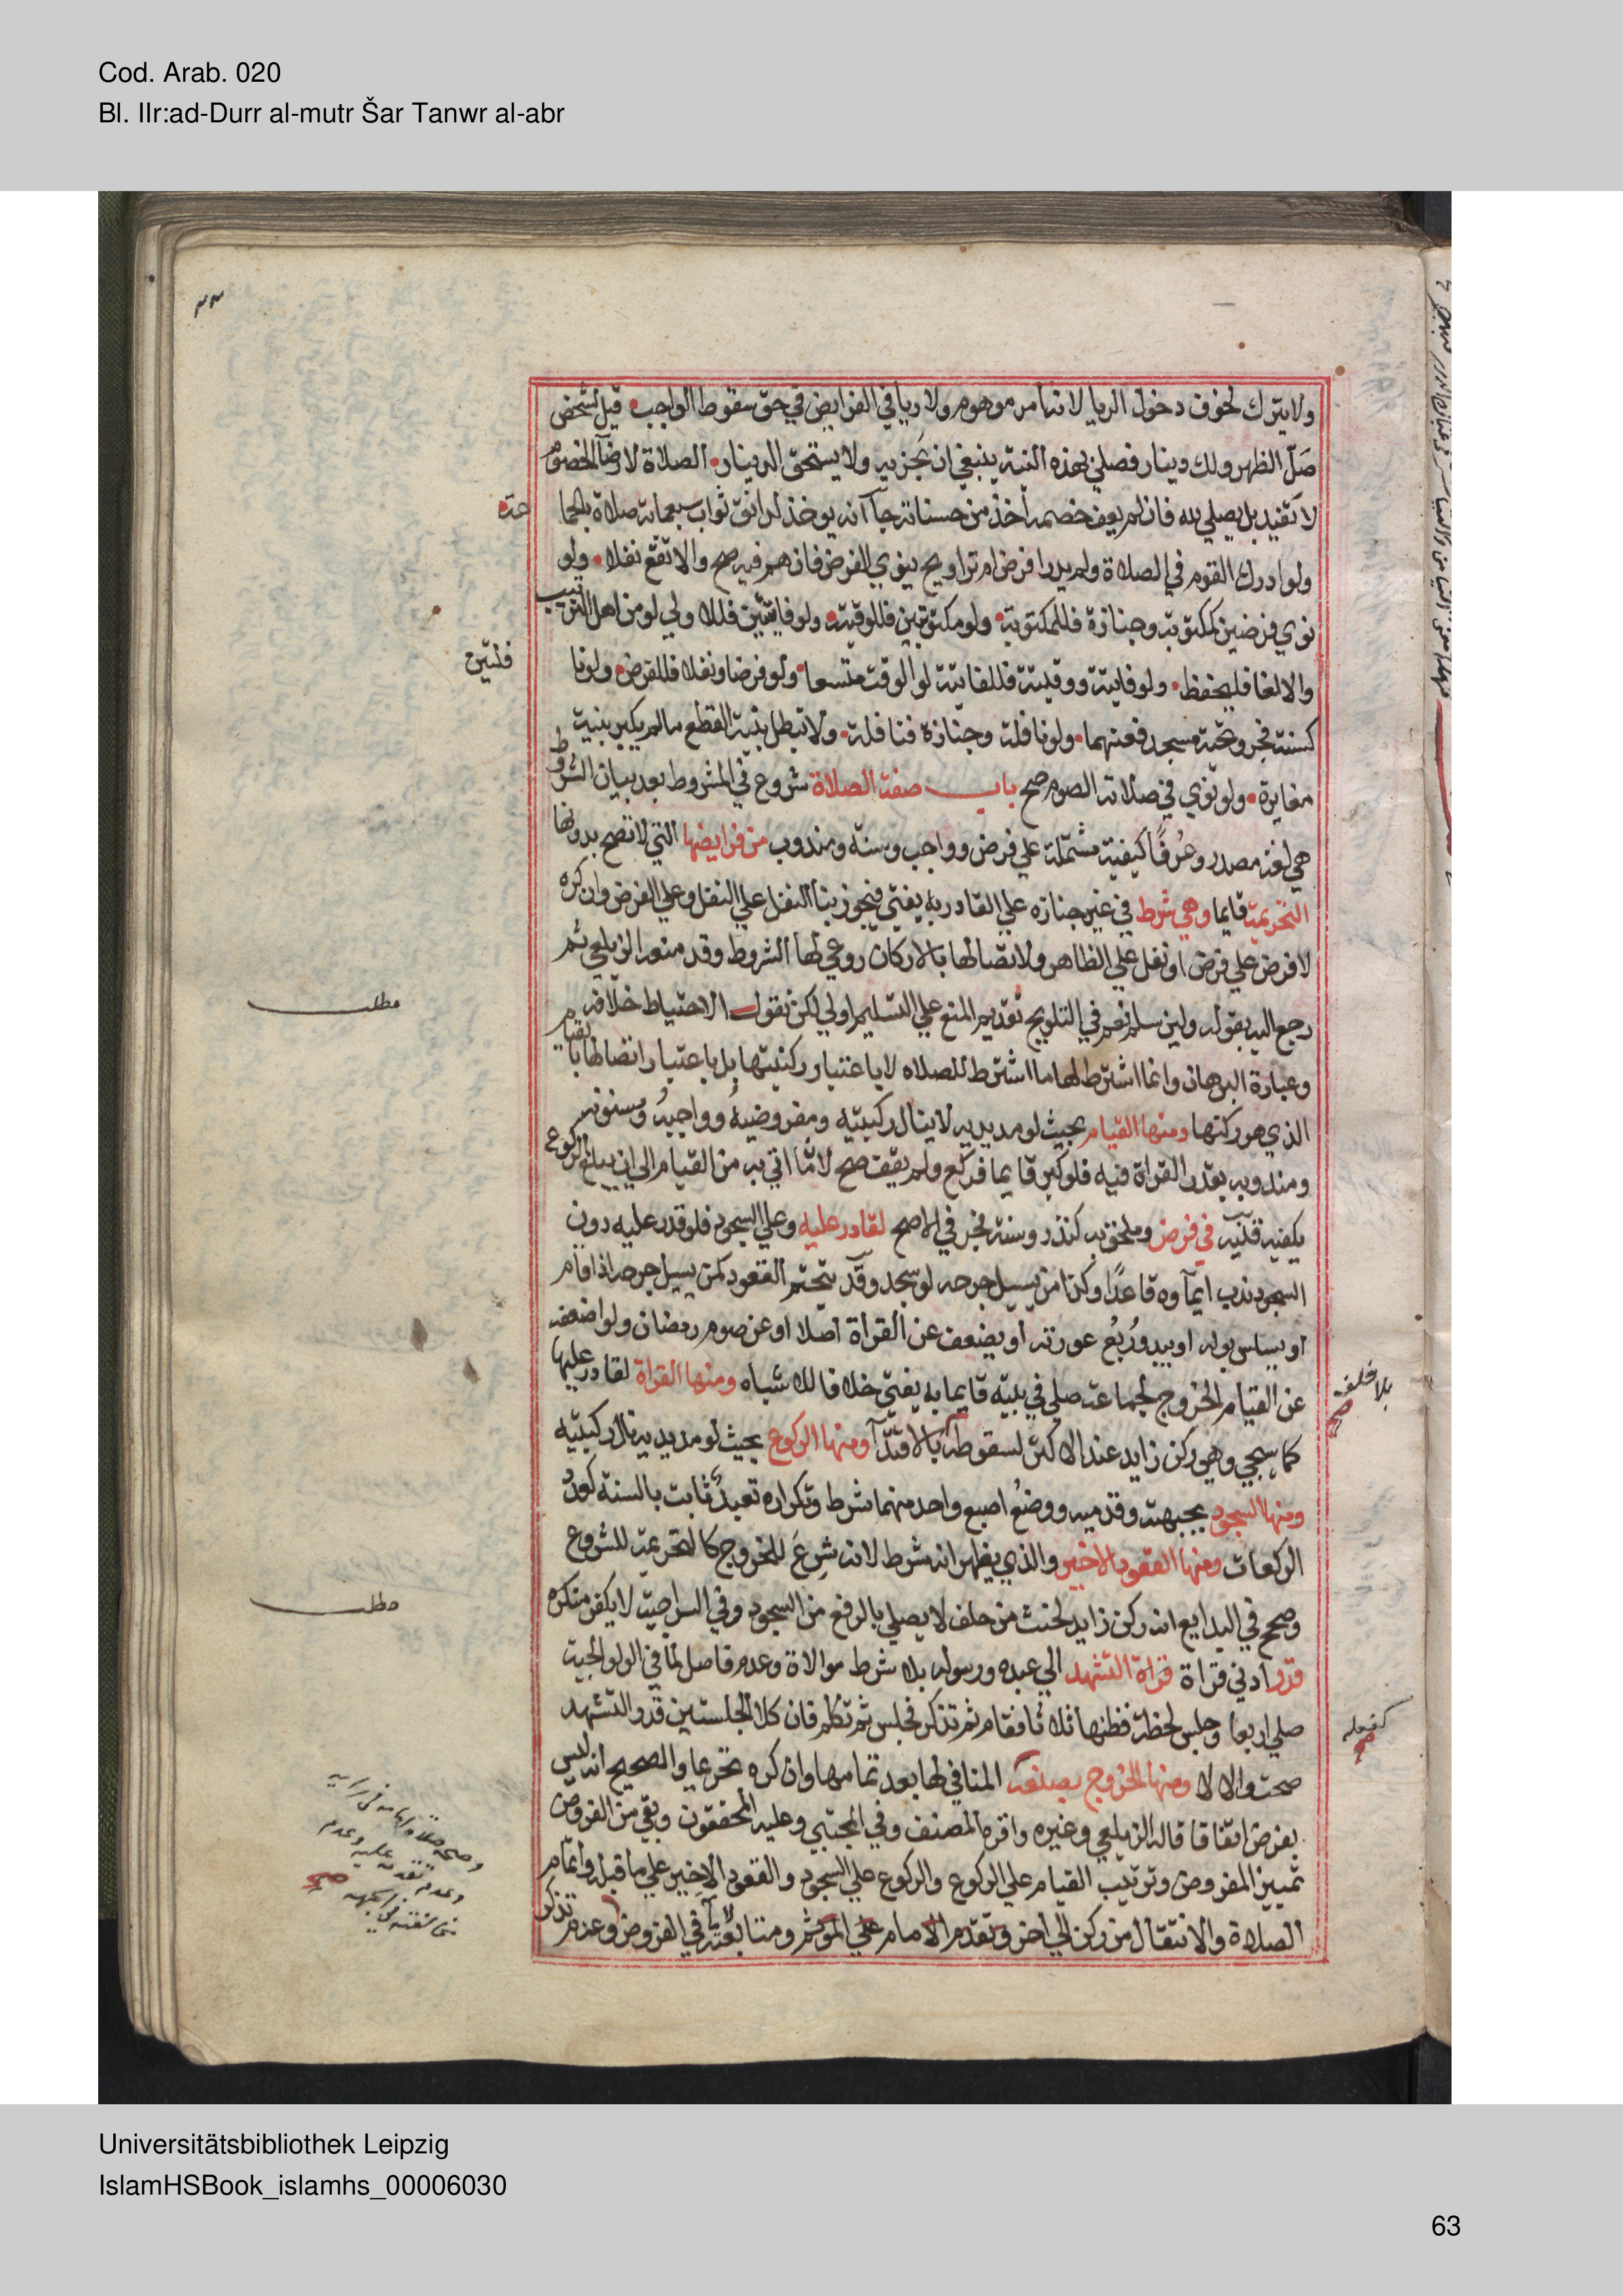 Cod. Arab. 020
Bl. IIr:ad-Durr al-mutr Šar Tanwr al-abr
ولا يترك لخوف دخول الريا لانه امر موهوم ولا ريا في الفرايض في حق سقوط الواجب قيل لشخص
صَلّ الظهر ولك دينار فصلي بهذه النية ينبغي ان تجزيه ولا يستحق الدينار الصلاة لارضآ الخصوم
لا تفيد بل يصلي لله فان لم يعف خصمه اخذ من حسناته جآ انه يوخذ لدانق ثواب سبعماية صلاة بالجما
عة
ولو ادرك القوم في الصلاة ولم يدر افرض ام تراويح ينوي الفرض فان هم فيه صح والا تقع نفلا ولو
نوي فرضين كمكتوبة وجنازة فللمكتوبة ولو مكتوبتين فللوقتية ولو فايتتين فللاولي لو من اهل الترتيب
والا لغا فليحفظ ولو فايتة ووقتية فللفايتة لو الوقت متسعا ولو فرضا ونفلا فللفرض ولو نا
فلتين
كسنة فجر وتحية مسجد فعنهما ولو نافلة وجنازة فنافلة ولا تبطل بنية القطع ما لم يكبر بنية
مغايرة ولو نوي في صلاته الصوم صح باب صفة الصلاة شروع في المشروط بعد بيان الشروط
هي لغة مصدر وعُرفًا كيفية مشتملة علي فرض وواجب وسنة ومندوب من فرايضها التي لا تصح بدونها
التحريمة قايما وهي شرط في غير جنازه علي القادر به يفتي فيجوز بنآ النفل علي النفل وعلي الفرض وان كره
لا فرض علي فرض او نفل علي الظاهر ولاتصالها بالاركان روعي لها الشروط وقد منعه الزيلعي ثم
مطلب
رجع اليه بقوله ولين سلم نعم في التلويح تقديم المنع علي التسليم اولي لكن نقول الاحتياط خلافه
وعبارة البرهان وانما اشترط لها ما اشترط للصلاه لا باعتبار ركنيتها بل باعتبار اتصالها بالقيام
الذي هو ركنها ومنها القيام بحيث لو مد يديه لا ينال ركبتيه ومفروضهُ وواجبهُ ومسنونه
ومندوبه بقدر القراة فيه فلو كبر قايما فركع ولم يقف صح لان ما اتي به من القيام الي ان يبلغ الركوع
يكفيه قنيه في فرض وملحق به كنذر وسنة فجر في الاصح لقادر عليه وعلي السجود فلو قدر عليه دون
السجود ندب ايمآوه قاعدًا وكذا من يسيل جرحه لو سجد وقد يتحتم القعود كمن يسيل جرحه اذا قام
او يسلس بوله او يبدو رُبُع عورته او يضعف عن القراة اصلا او عن صوم رمضان ولو اضعفه
عن القيام الخروج لجماعة صلي في بيته قايما به يفتي خلافا للاشباه ومنها القراة لقادر عليها
كما سيجي وهو ركن زايد عند الاكثر لسقوطه بالاقتدآ ومنها الركوع بحيث لو مد يديه نال ركبتيه
بلا خلف
صح
ومنها السجود بجبهته وقدميه ووضعُ اصبع واحد منهما شرط وتكراره تعبدٌ ثابت بالسنة كعدد
الركعات ومنها القعود الاخير والذي يظهر انه شرط لانه شرعَ للخروج كالتحريمة للشروع
مطلب
وصحح في البدايع انه ركن زايد لحنث من حلف لا يصلي بالرفع من السجود وفي السراجية لا يكفر منكره
قدر ادني قراة قراة التشهد الي عبده ورسوله بلا شرط موالاة وعدم فاصل لما في الولوالجية
صلي اربعا وجلس لحظة فظنها ثلاثا فقام ثم تذكر فجلس ثم تكلم فان كلا الجلستين قدر التشهد
صحت والا لا ومنها الخروج بصنعه المنافي لها بعد تمامها وان كره تحريما والصحيح انه ليس
كفعله
صح
بفرض اتفاقا قاله الزيلعي وغيره واقره المصنف وفي المجتبي وعليه المحققون وبقي من الفروض
تمييز المفروض وترتيب القيام علي الركوع والركوع علي السجود والقعود الاخير علي ما قبله واتمام
الصلاة والانتقال من ركن الي اخر وتقدم الامام علي المؤتم ومتابعته في الفروض وعدم تذكر
وصحة صلاة امامه في رايه
وعدم تقدمه عليه وعدم
مخالفته في الجهة صح
Universitätsbibliothek Leipzig
IslamHSBook_islamhs_00006030
63